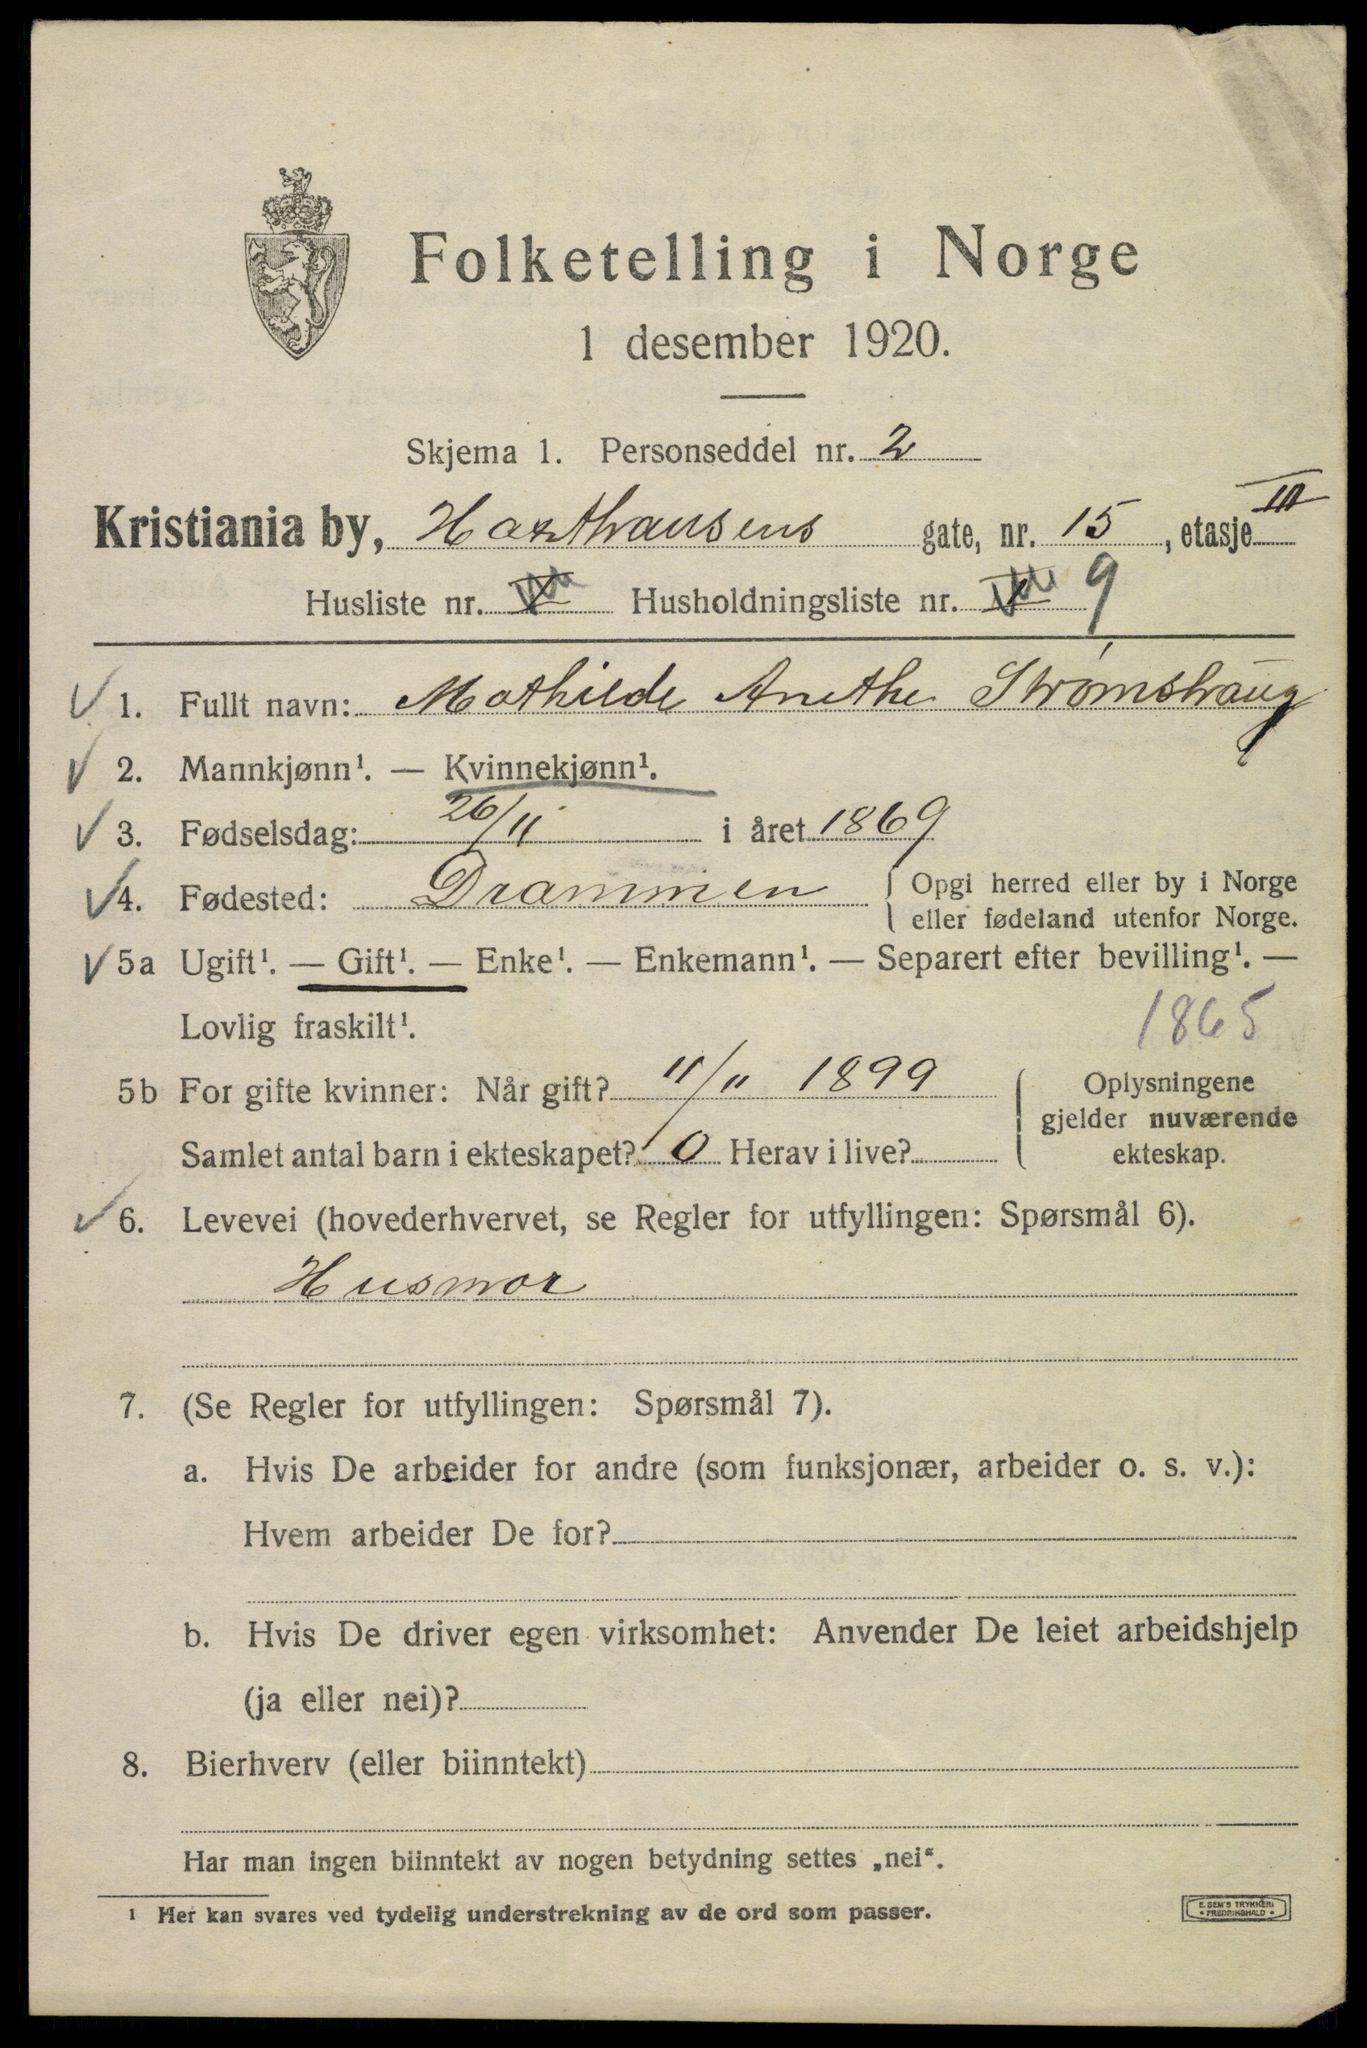 Folketelling i Norge
1 desember 1920.
Skjema 1. Personseddel nr. 2
Kristiania by, Haxthausens gate, nr. 15, etasje III
Husliste nr. Husholdningsliste nr. 9
1. Fullt navn: Mathilde Anethe Strømshaug
2. Mannkjønn¹. — Kvinnekjønn¹.
3. Fødselsdag: 26/11 i året 1869
4. Fødested: Drammen
Opgi herred eller by i Norge
eller fødeland utenfor Norge.
5a Ugift¹. — Gift¹. — Enke¹. — Enkemann¹. — Separert efter bevilling¹. —
Lovlig fraskilt¹.
1865
5b For gifte kvinner: Når gift? 11/11 1899
Samlet antal barn i ekteskapet? 0 Herav i live?
Oplysningene
gjelder nuværende
ekteskap.
6. Levevei (hovederhvervet, se Regler for utfyllingen: Spørsmål 6).
Husmor
7. (Se Regler for utfyllingen: Spørsmål 7).
a. Hvis De arbeider for andre (som funksjonær, arbeider o. s. v.):
Hvem arbeider De for?
b. Hvis De driver egen virksomhet: Anvender De leiet arbeidshjelp
(ja eller nei)?
8. Bierhverv (eller biinntekt)
Har man ingen biinntekt av nogen betydning settes „nei“.
¹ Her kan svares ved tydelig understrekning av de ord som passer.
E. SEM'S TRYKKERI
FREDRIKSHALD